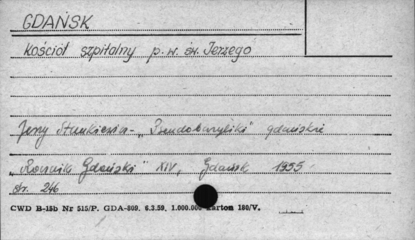 GDAŃSK
Kościół szpitalny p.w. św. Jerzego
Jerzy Stankiewicz - „Pseudobazyliki" gdańskie
„Rocznik Gdański" XIV, Gdańsk 1955
str. 246
CWD B-15b Nr 515/P. GDA-809. 6.3.59, 1.000.000 karton 180/V.